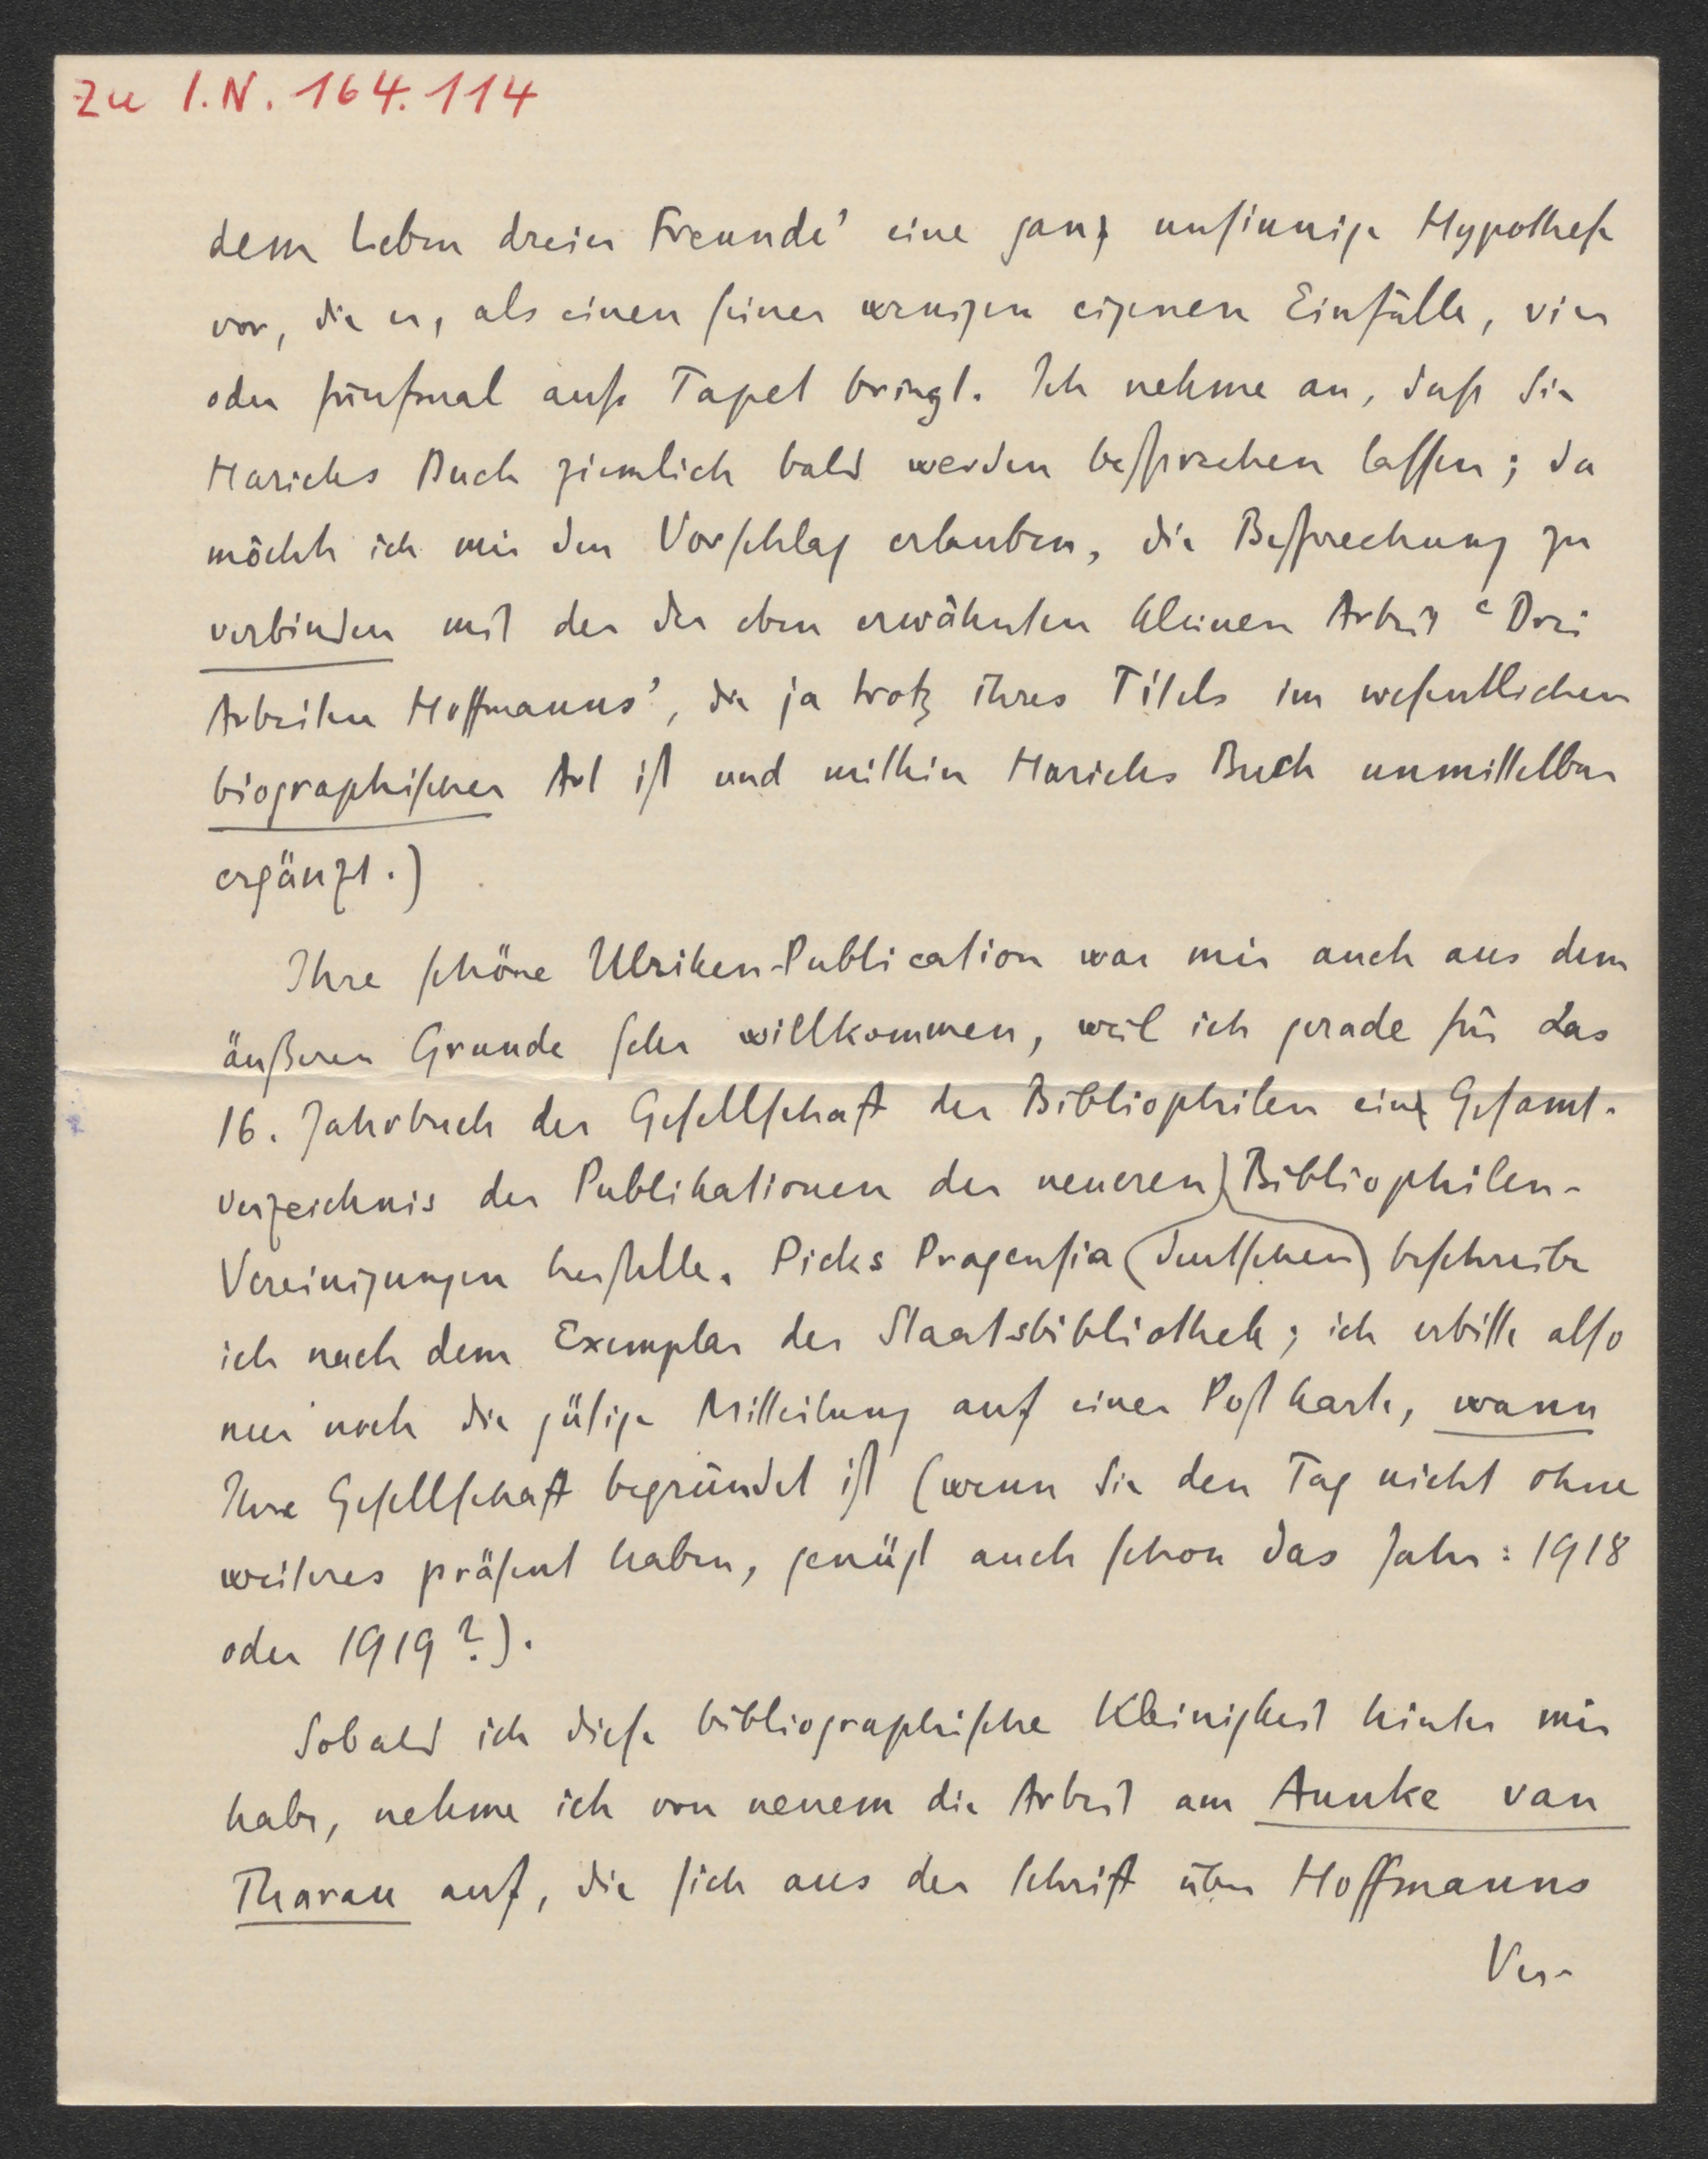 Zu I.N. 164.114
dem Leben dreier Freunde' eine ganz unsinnige Hypothese
vor, die er, als einen seiner wenigen eigenen Einfälle, vier
oder fünfmal aufs Tapet bringt. Ich nehme an, dass Sie
Harichs Buch ziemlich bald werden besprechen lassen; da
möcht ich mir den Vorschlag erlauben, die Besprechung zu
verbinden mit der der eben erwähnten kleinen Arbeit 'Drei
Arbeiten Hoffmanns', die ja trotz ihres Titels im wesentlichen
biographischer Art ist und mithin Harichs Buch unmittelbar
ergänzt.)
Ihre schöne Ulriken-Publication war mir auch aus dem
äußeren Grunde sehr willkommen, weil ich gerade für das
16. Jahrbuch der Gesellschaft der Bibliophilen ein Gesamt-
verzeichnis der Publikationen der neueren Bibliophilen-
Vereinigungen herstelle. Picks Pragensia (deutschen) beschreibe
ich nach dem Exemplar der Staatsbibliothek; ich erbitte also
nur noch die gütige Mitteilung auf einer Postkarte, wann
Ihre Gesellschaft begründet ist (wenn Sie den Tag nicht ohne
weiteres präsent haben, genügt auch schon das Jahr: 1918
oder 1919?).
Sobald ich diese bibliographische Kleinigkeit hinter mir
habe, nehme ich von neuem die Arbeit am Annke van
Tharau auf, die sich aus der Schrift über Hoffmanns
Ver-